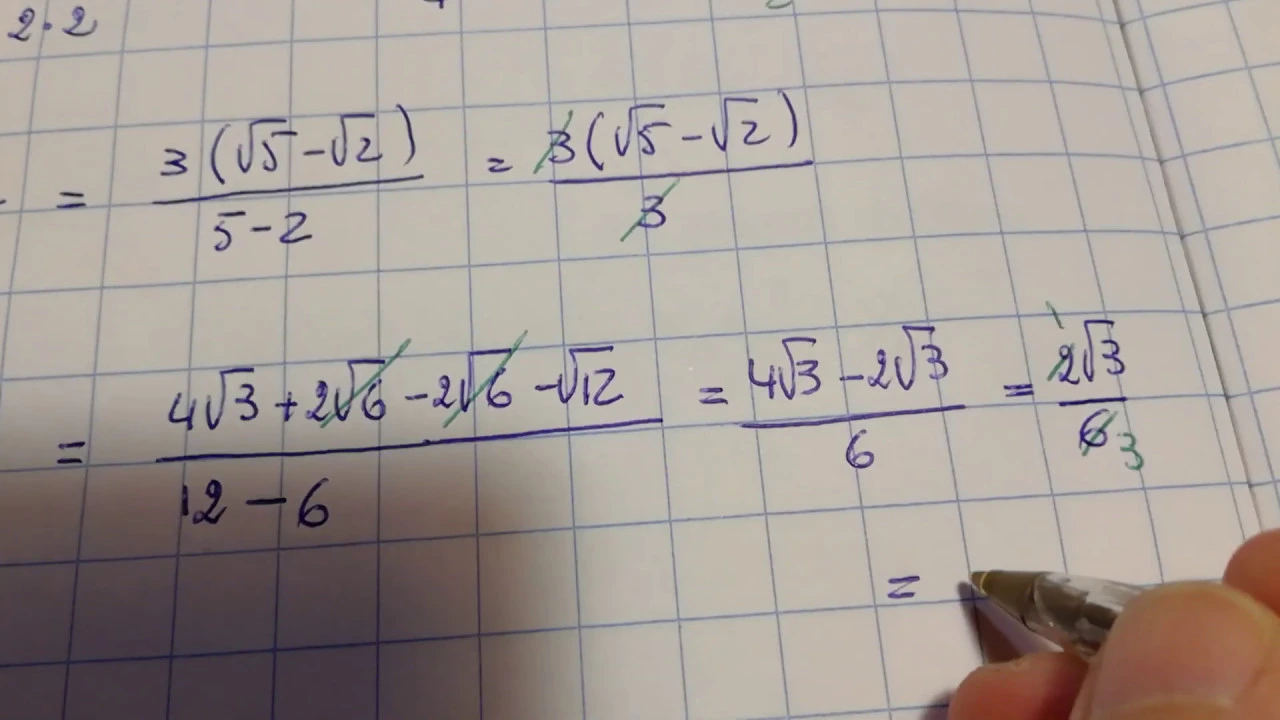 2·2
= 3(√5-√2)/5-2 = 3(√5-√2)/3
= 4√3+2√6-2√6-√12/12-6 = 4√3-2√3/6 = 2√3/6 1 3
=